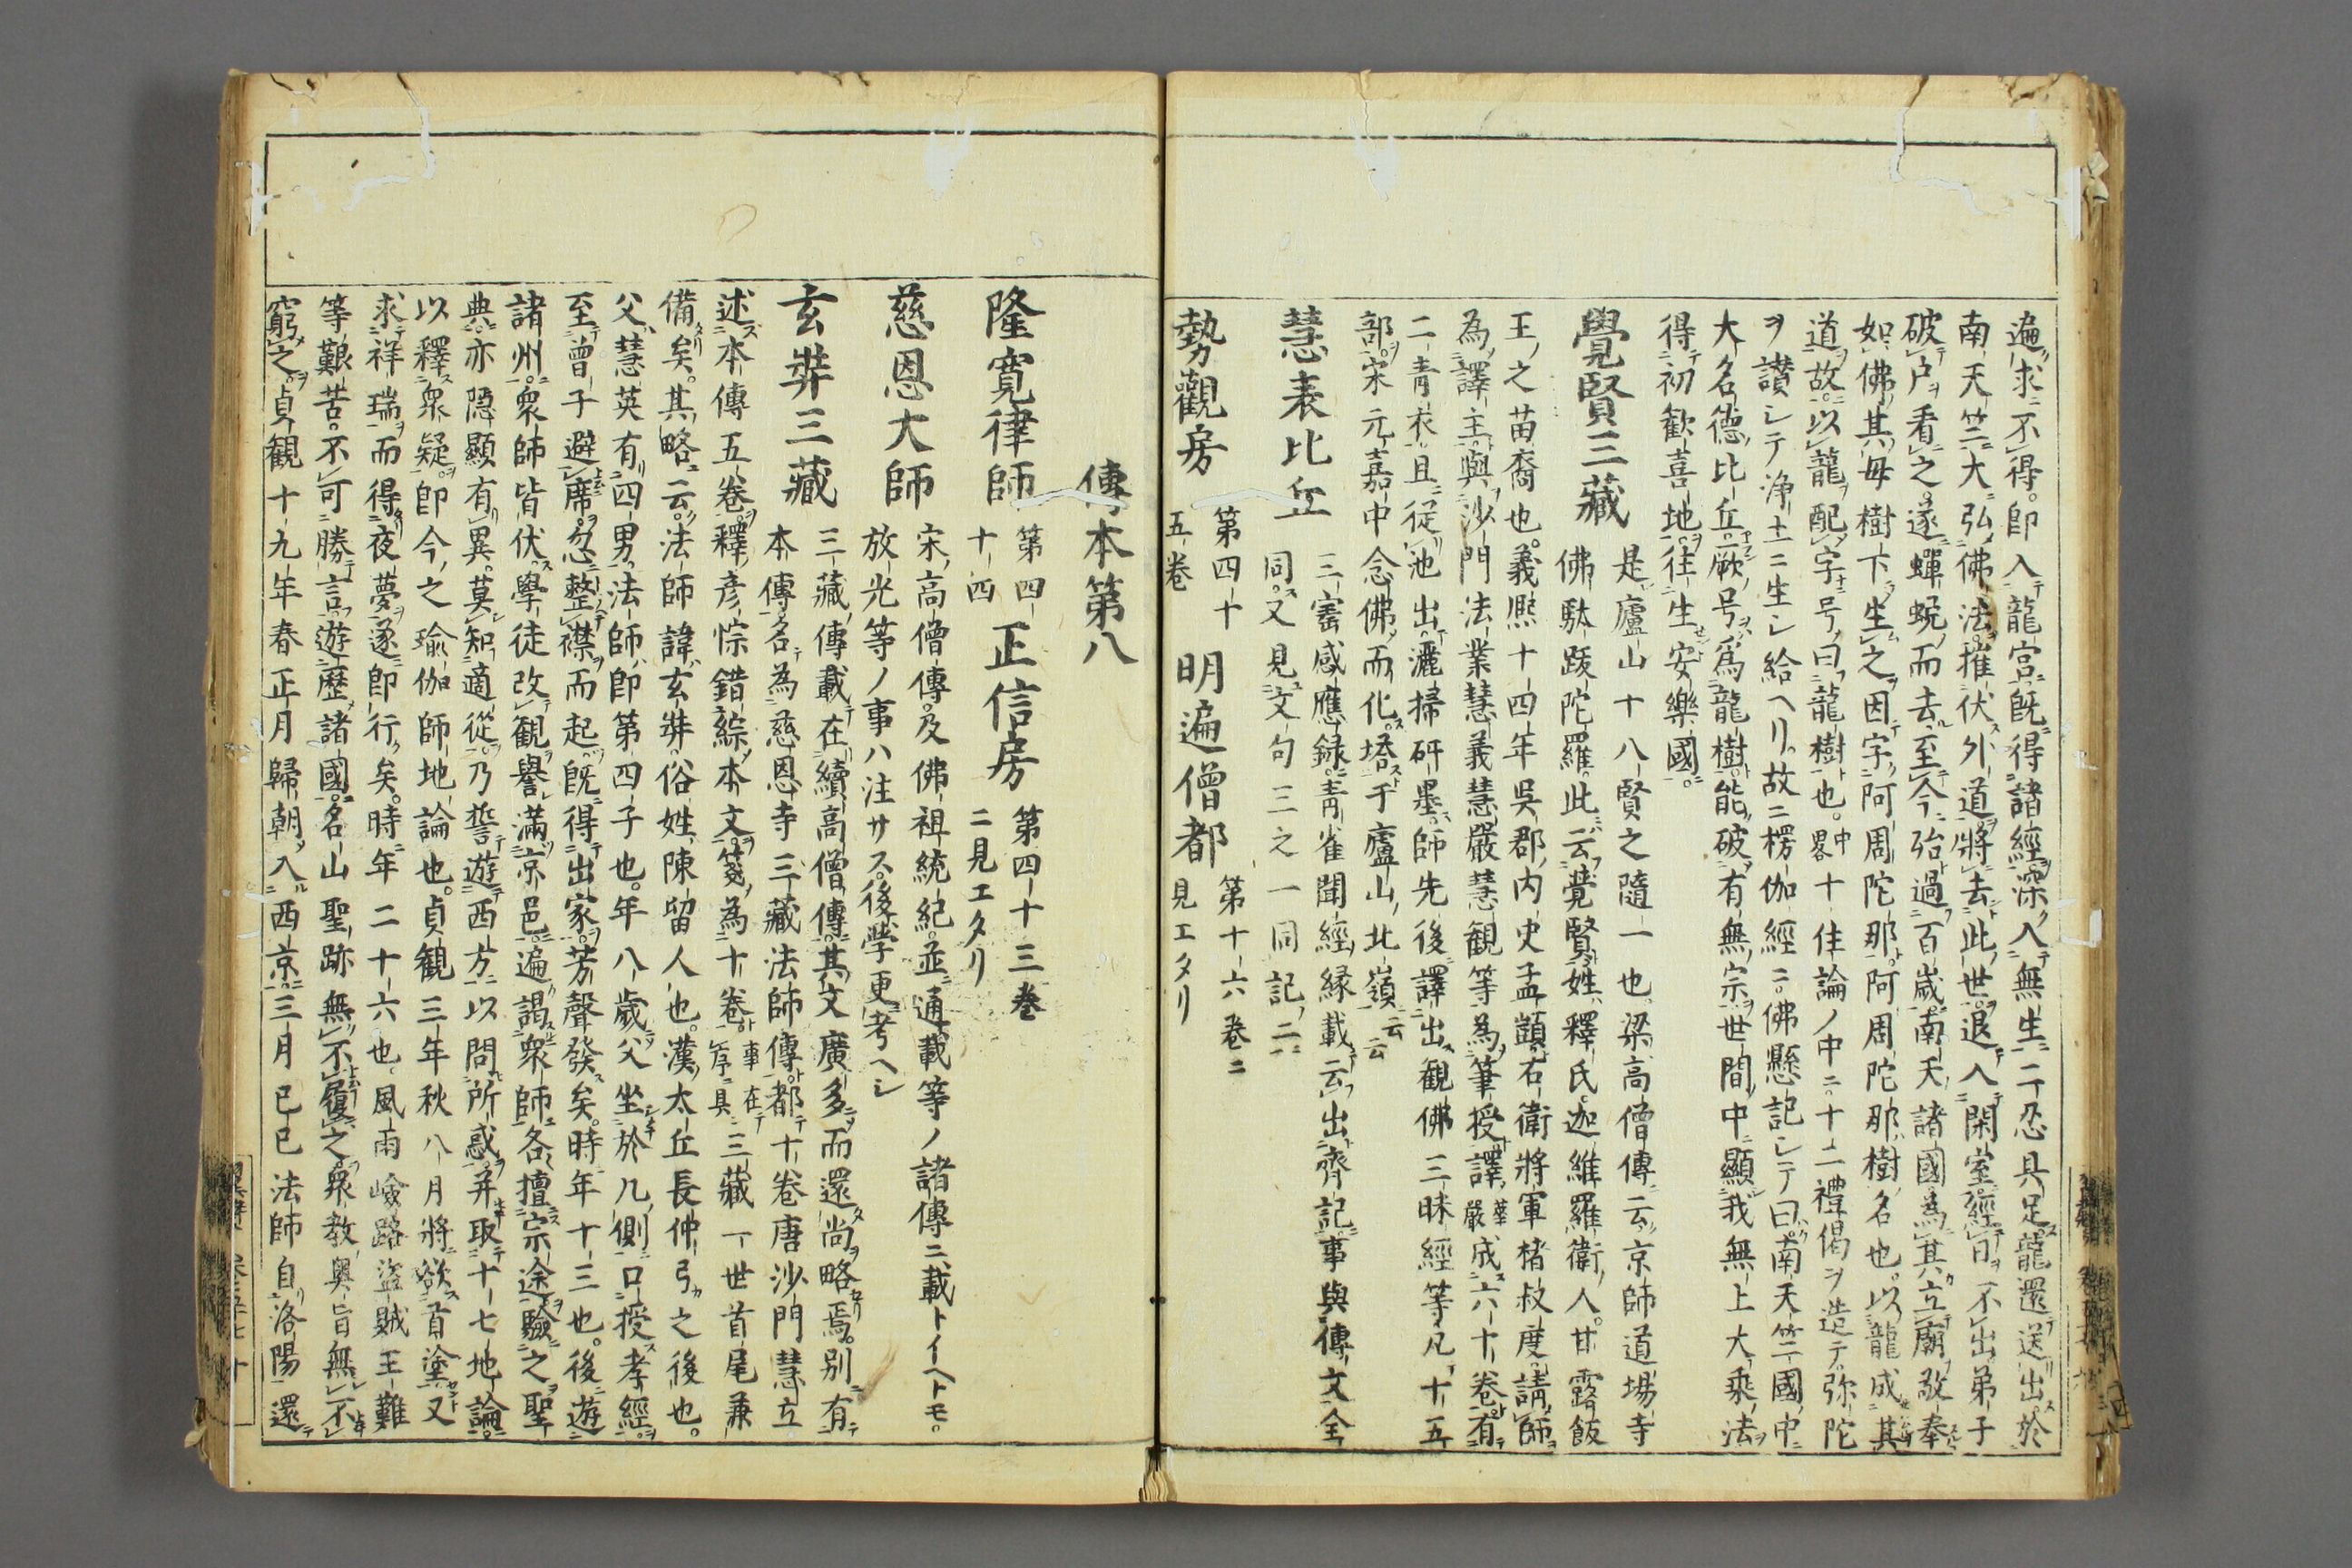 遍求不得。即入龍宮。既得諸經。深入無生。二忍具足。龍還送出於
南天竺。大弘佛法。摧伏外道。將去此世。退入閑室。經日不出。弟子
破戸看之。遂蟬蛻而去。至今殆過百歳。南天諸國。為其立廟。敬奉
如佛。其母樹下生之。因字阿周陀那。阿周陀那樹名也。以龍成其
道故。以龍配字号曰龍樹也。中畧十住論ノ中ニ十二禮偈ヲ造テ弥陀
ヲ讃シテ浄土ニ生シ給ヘリ。故ニ楞伽經ニ。佛懸記シテ曰。南天竺國中
大名德比丘。厥号為龍樹。能破有無宗。世間中顯我無上大乘法
得初歡喜地。往生安樂國。
覺賢三藏
是廬山十八賢之隨一也。梁高僧傳云。京師道場寺
佛馱跋陀羅。此云覺賢。姓釋氏。迦維羅衛人。甘露飯
王之苗裔也。義熙十四年。吳郡内史孟顗。右衛將軍楮叔度。請師
為譯主。與沙門法業慧義慧嚴慧観等為筆授。譯華嚴成六十卷。有
二青衣。且從池出。灑掃研墨。師先後譯出観佛三昧經等凡十五
部。宋元嘉中念佛而化。塔于廬山北嶺云云
慧表比丘
三寶感應録。青雀聞經縁載云。出齊記。事與傳文全
同。又見文句三之一同記二
勢觀房
第四十五卷
明遍僧都
第十六卷ニ見エタリ
傳本第八
隆寛律師
第四十四
正信房
第四十三卷ニ見エタリ
慈恩大師
宋高僧傳。及佛祖統紀。並通載等ノ諸傳ニ載トイヘトモ。
放光等ノ事ハ注サス。後學更考ヘシ
玄奘三藏
三藏傳載在續高僧傳。其文廣多。而還尚略焉。別有
本傳。名為慈恩寺三藏法師傳。都十卷。唐沙門慧立
述本傳五卷。釋彦悰錯綜本文。箋為十卷。事在序具三藏一世首尾兼
備矣。其略云。法師諱玄奘。俗姓陳留人也。漢太丘長仲弓之後也。
父慧英有四男。法師即第四子也。年八歳父坐於几側口授孝經。
至曾子避席。忽整襟而起。既得出家。芳聲發矣。時年十三也。後遊
諸州。衆師皆伏。學徒改観。譽滿京邑。遍謁衆師各擅宗途。驗之聖
典。亦隱顯有異。莫知適從。乃誓遊西方以問所惑。并取十七地論。
以釋衆疑。即今之瑜伽師地論也。貞観三年秋八月將欲首塗。又
求祥瑞。而得夜夢。遂即行矣。時年二十六也。風雨嶮路盗賊王難
等艱苦。不可勝言。遊歴諸國。名山聖跡無不履之。衆教奥旨無不
窮之。貞観十九年春正月歸朝。入西京。三月己巳法師自洛陽還